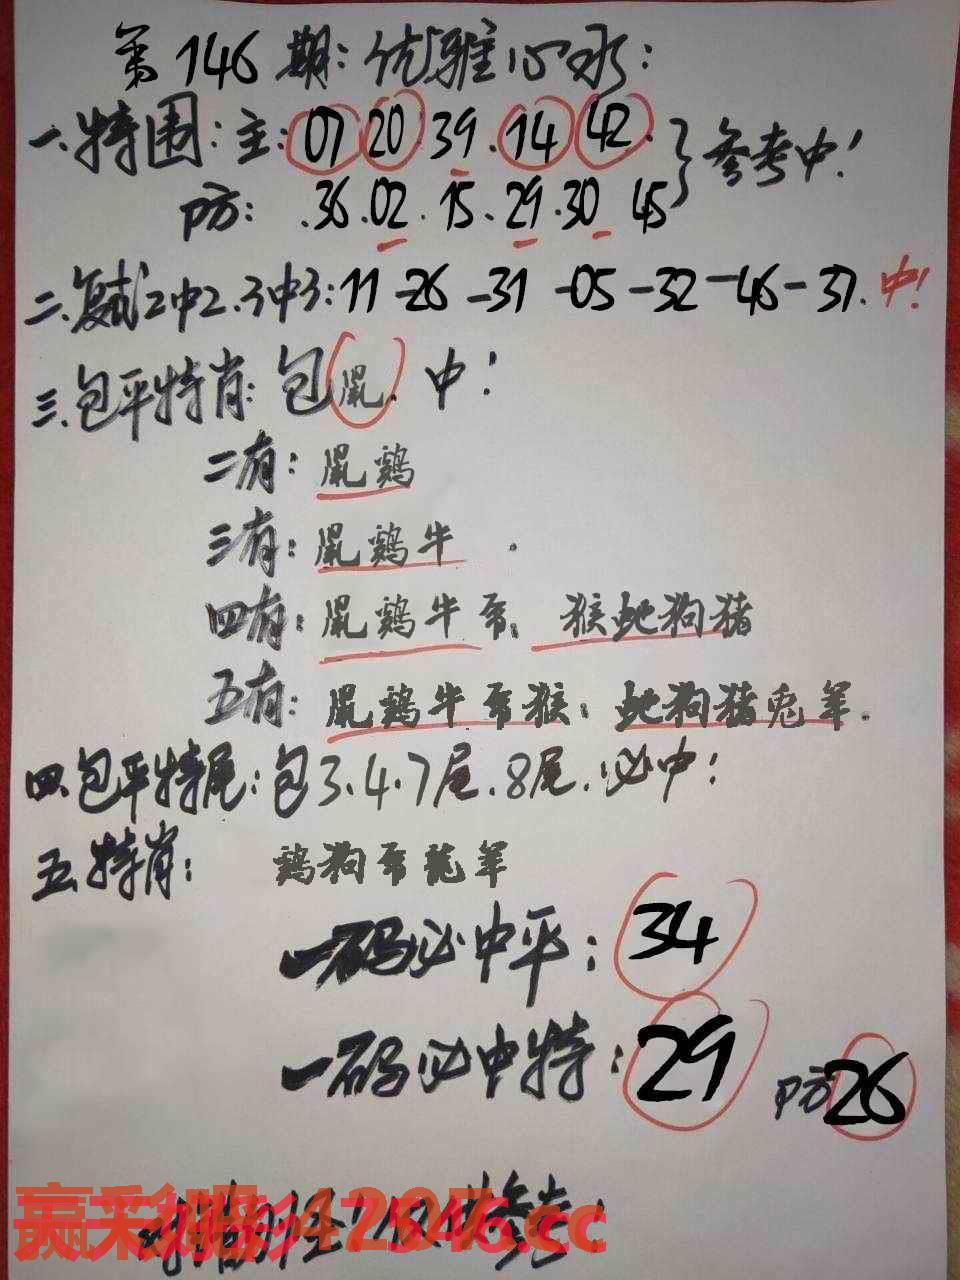 第146期:优雅心水:
一.特围:主:07 20.39.14 42.
防:.36.02.15.29.30 45 }参考中!
二.复式2中2.3中3:11-26-31-05-32-46-37.中!
三.包平特肖:包鼠.中!
二有:鼠鸡
三有:鼠鸡牛.
四有:鼠鸡牛马.猴蛇狗猪
五有:鼠鸡牛马猴.蛇狗猪兔羊.
四.包平特尾:包3.4.7尾.8尾.必中!
五.特肖:鸡狗马龙羊
一码必中平:34
一码必中特:29 防26
赢彩
.cc